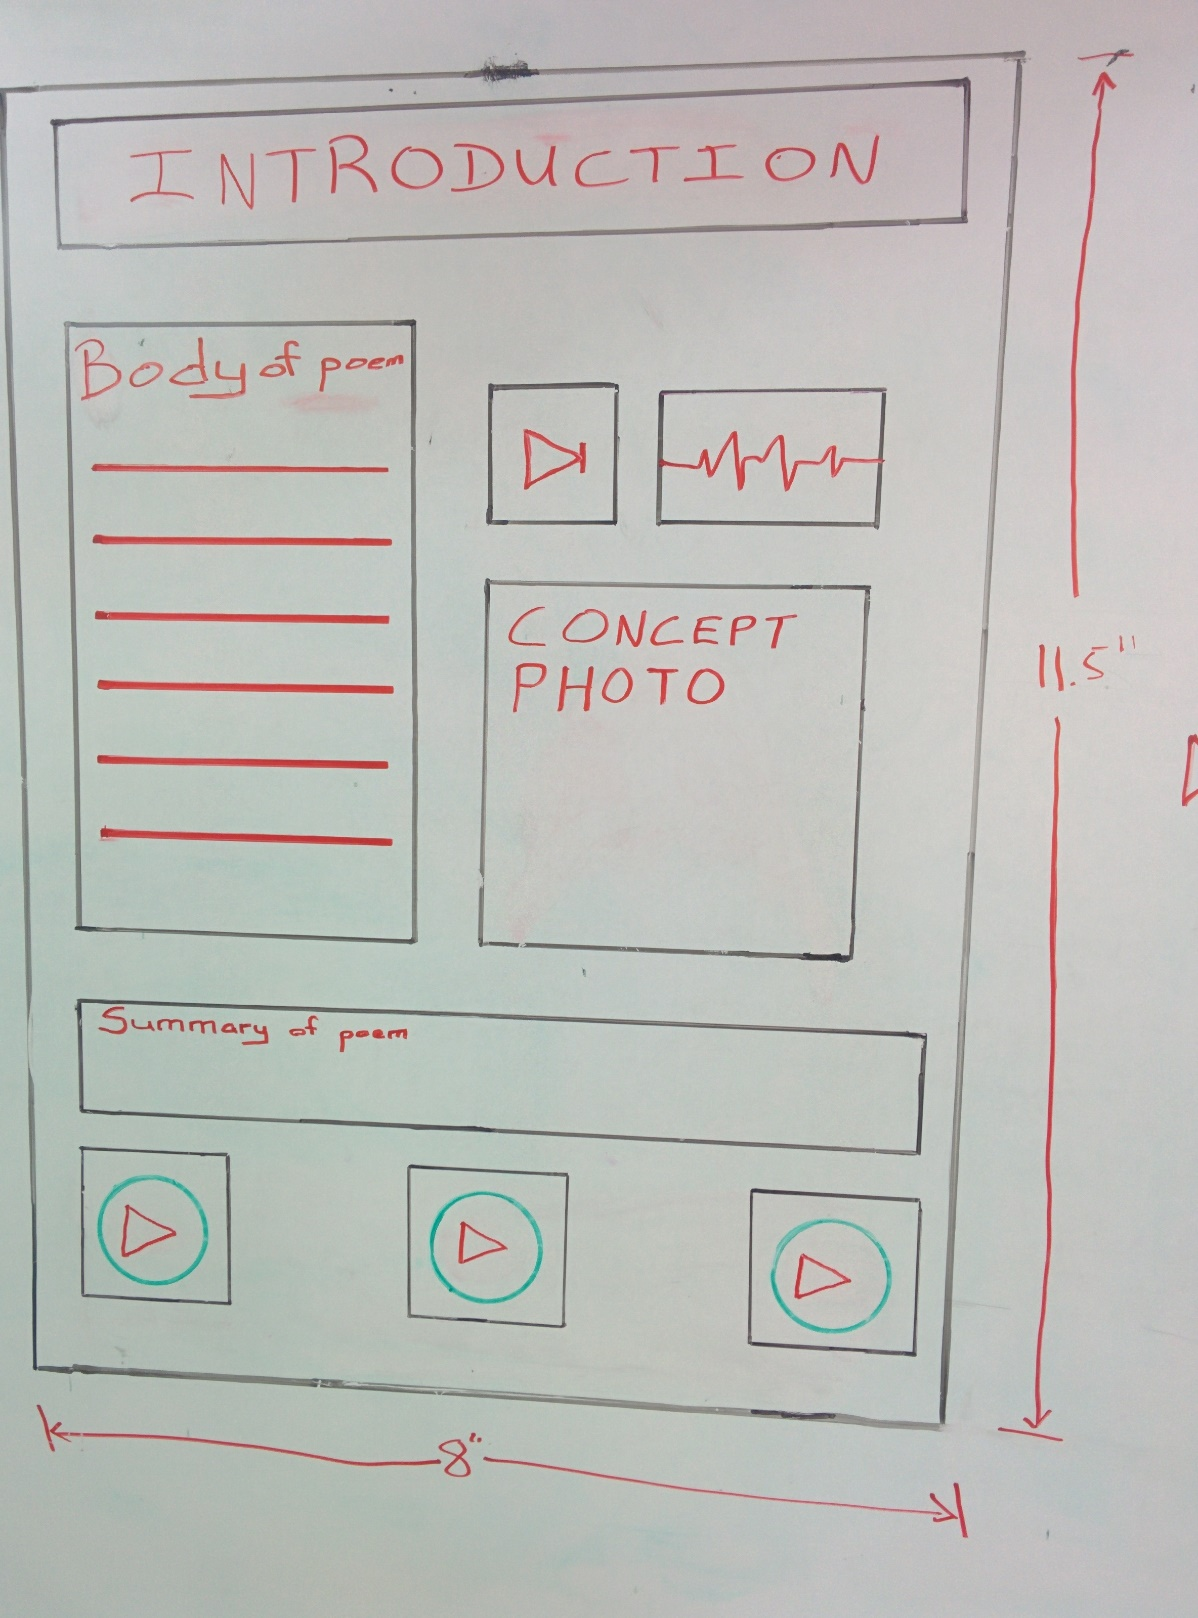 INTRODUCTION
Body of poem
CONCEPT
PHOTO
11.5"
Summary of poem
8"